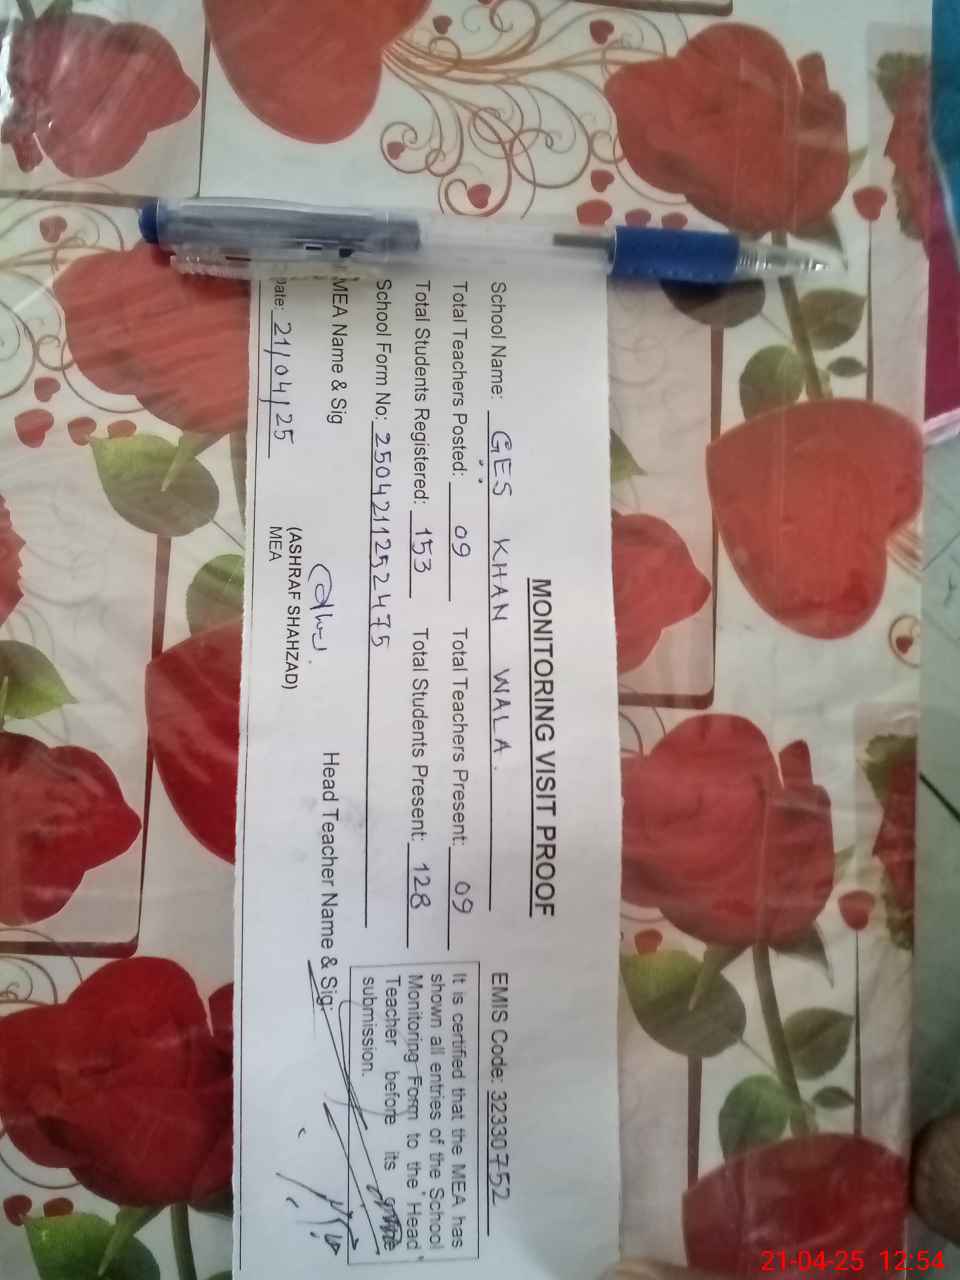 MONITORING VISIT PROOF
School Name: GES KHAN WALA. EMIS Code: 32330752
Total Teachers Posted: 09 Total Teachers Present: 09
Total Students Registered: 153 Total Students Present: 128
School Form No: 2504211252475
It is certified that the MEA has
shown all entries of the School
Monitoring Form to the Head
Teacher before its
submission.
MEA Name & Sig Head Teacher Name & Sig:
(ASHRAF SHAHZAD)
MEA
Date: 21/04/25
21-04-25 12:54